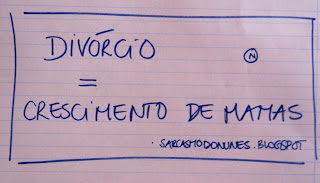 DIVÓRCIO
N
=
CRESCIMENTO DE MAMAS
. SARCASMODONUNES.BLOGSPOT